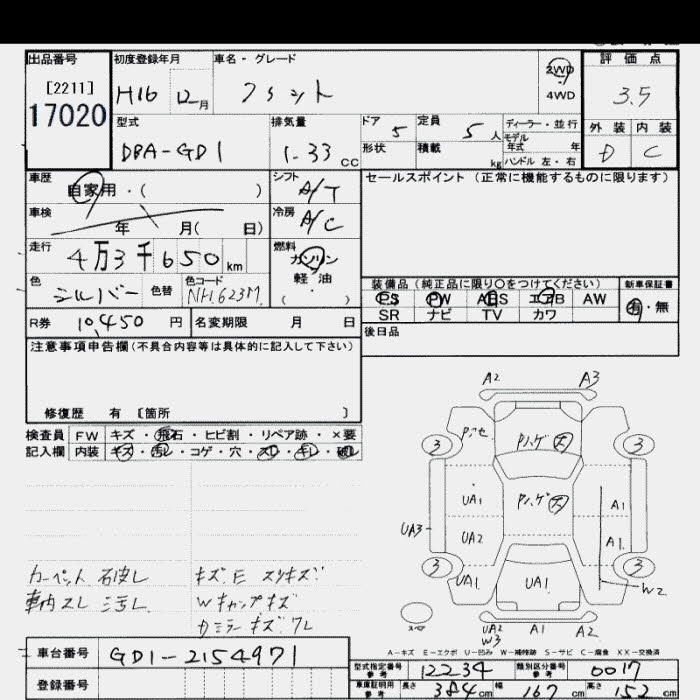 出品番号 初度登録年月 車名・グレード 2WD 評価点
[2211] H16 12月 フィット 4WD 3.5
17020
型式 排気量 ドア 5 定員 5人 ディーラー・並行 外装 内装
DBA-GD1 1.33 CC 形状 積載 kg モデル年式 年 D C
ハンドル 左・右
車歴 自家用・( ) シフト A/T セールスポイント (正常に機能するものに限ります)
車検 年 月( 日) 冷房 A/C
走行 4万3千650km 燃料 ガソリン
軽・油
( ・ )
色 シルバー 色替 色コード NH623M 装備品 (純正品に限り○をつけてください) 新車保証書
PS PW ABS エアB AW 有・無
SR ナビ TV カワ
R券 10,450 円 名変期限 月 日 後日品
注意事項申告欄(不具合内容等は具体的に記入して下さい)
修復歴 有 [箇所 ]
検査員 FW キズ・飛石・ヒビ割・リペア跡・×要
記入欄 内装 キズ・汚レ・コゲ・穴・スレ・キレ・破レ
A2 A3
3 Pハゲ 大 3
UA1 Pハゲ 大 A1
UA3 UA2 A1
3 UA1 UA1 3
W2
スペ
UA2 A1 A2
W3
カーペット キズ・E スリキズ
車内スレ 汚レ Wキャップキズ
カミラーキズ
A-キズ E-エクボ U-凹み W-補修跡 S-サビ C-腐食 XX-交換済
車台番号 GD1-2154971 型式指定番号 12234 類別区分番号 0017
参考 参考
登録番号 車庫証明用 長さ 384cm 幅 167cm 高さ 152cm
参考